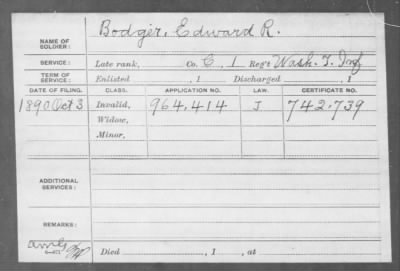 NAME OF SOLDIER: Bodger, Edward R.
SERVICE: Late rank, Co. C, 1 Reg't Wash. T. Inf
TERM OF SERVICE: Enlisted , 1 Discharged , 1
DATE OF FILING. CLASS. APPLICATION NO. LAW. CERTIFICATE NO.
1890 Oct 3 Invalid, 964,414 J 742,739
Widow,
Minor,
ADDITIONAL SERVICES:
REMARKS:
Died , 1 , at